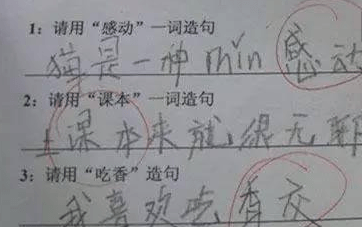 1：请用“感动”一词造句
猫是一种mǐn感动
2：请用“课本”一词造句
上课本来就很无聊
3：请用“吃香”造句
我喜欢吃香交